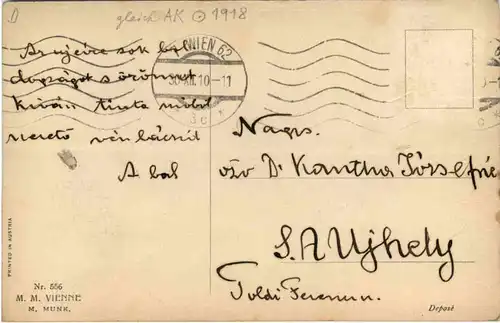 D
gleich AK 1918
WIEN 62
30.XII.10-11
Az ujévre sok bol
dogságot s örömet
kíván tiszta szivből
szerető
A bal
Nagys.
özv Dr Kantha Józsefné
S. A Ujhely
Toldi Ferenc u.
PRINTED IN AUSTRIA
Nr. 556
M. M. VIENNE
M. MUNK.
Deposé